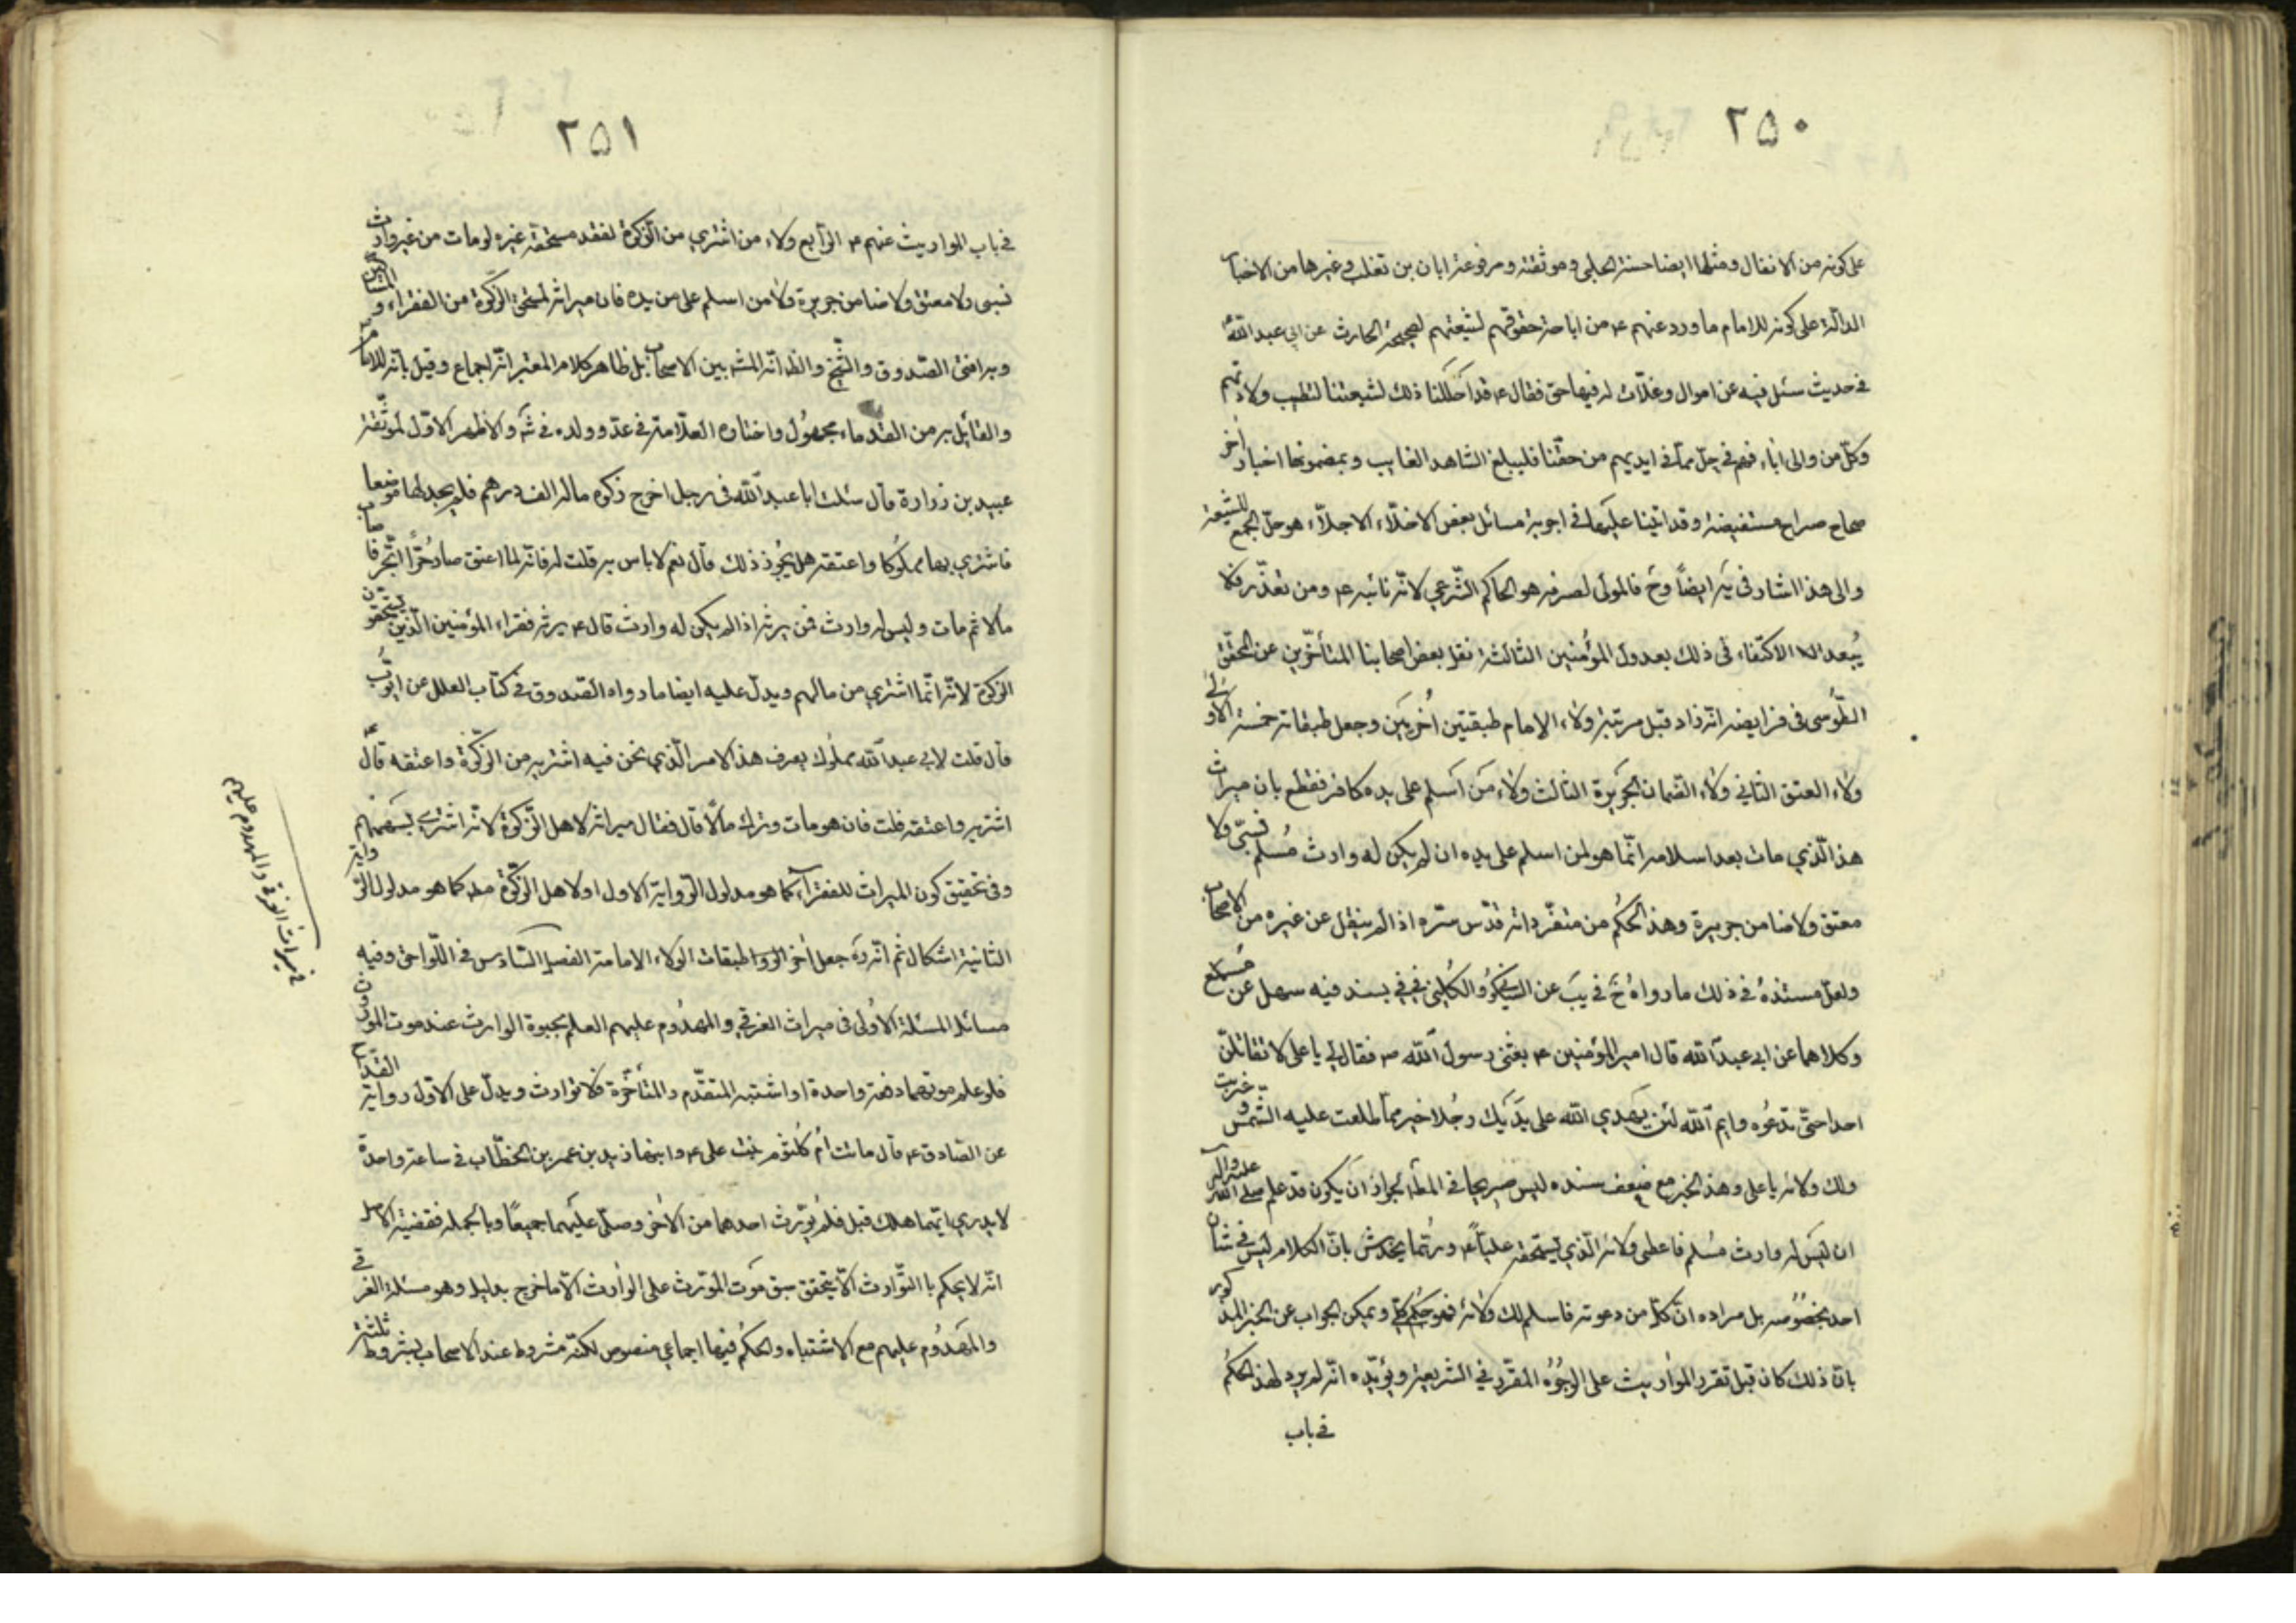 ٢٥٠
على كونه من الانفال ومثلها ايضا حسنة الحلبي وموثقته ومرفوعة ابان بن تغلب وغيرها من الاخبار
الدالّة على كونه للامام ما ورد عنهم ع من اباحة حقوقهم لشيعتهم لصحيحة الحارث عن ابي عبد الله ع
في حديث سئل فيه عن اموال وغلّات له فيها حق فقال ع قد احللنا ذلك لشيعتنا لتطيب ولادتهم
وكلّ من والى اباء فهم في حلّ ممّا في ايديهم من حقّنا فليبلغ الشاهد الغايب وبمضمونها اخبار أخر
صحاح صراح مستفيضة وقد اتينا عليها في اجوبة مسائل بعض الاخلّاء الاجلّاء هو حلّ الجمع للشيعة
والى هذا اشار في ئر ايضاً وح فالمولى لصرفه هو الحاكم الشّرعي لانّه نائبه ع ومن تعذّر فلا
يُبعد الاكتفاء في ذلك بعدول المؤمنين الثالثة نقل بعض اصحابنا المتأخّرين عن المحقق
الطّوسى في فرايضه انّه زاد قبل مرتبة ولاء الامام طبقتين أُخريَين وجعل طبقاته خمسة الأولى
ولاء العتق الثاني ولاء الضمان الجَريرة الثالث ولاء مَن اَسلم على يده كافر فقطع بان ميراث
هذا الّذي مات بعد اسلامه انّما هو لمن اسلم على يده ان لم يكن له وارث مُسلم نسبّي ولا
معتق ولا ضامن جريرة وهذا الحكم من متفرّداته قدّس سرّه اذا لم ينقل عن غيره من الاصحاب
ولعلّ مستندهُ في ذلك ما رواهُ خ في يَب عن السكوني والكُليني في في بسند فيه سهل عن مسمع
وكلاهما عن ابي عبد الله قال امير المؤمنين ع بعثني رسول الله ص فقال لي يا على لا تقاتلنّ
احدا حتّى تدعُوه وايم الله لئن يَهدي الله على يدَيك رجُلا خير ممّا طلعت عليه الشّمس وغربت
ولك ولائه يا على وهذا الخبر مع ضعف سنده ليس صريحا في المطّ لجواز ان يكون قد علم صلى الله عليه واله
ان ليس له وارث مُسلم فاعطى ولائه الّذي يستحقه عليّاً ع وربّما يخدش بانّ الكلام ليس في شان
احد بخصُوصه بل مراده انّ كلّ من دعوته فاسلم لك ولائه فهو حُكم كلّي ويمكن الجواب عن الخبر المذكور
بانّ ذلك كان قبل تقرر المواريث على الوجُوُه المقرّر في الشريعة ويؤيّده انّه لم يرد لهذا الحكم
في باب
٢٥١
في باب المواريث عنهم ع الرّابع ولاء من اشتري من الزّكوة لفقد مستحقّه غيره لو مات من غير وارث
نسبي ولا معتق ولا ضامن جريرة ولا من اسلم على من يده فان ميراثه لمستحق الزّكوة من الفقراء والمساكين
وبه افتى الصّدوق والشّيخ والظ انّه المشه بين الاصحاب بل ظاهر كلام المعتبر انّه اجماع وقيل بانّه للامام ع
والقائل به من القدماء مجهُول واختاره العلّامة في عدّ وولده في شه والاظهر الاوّل لموثّقة
عبيد بن زرارة قال سئلت ابا عبد الله في رجل اخرج زكوة ماله الف درهم فلم يجد لها موضعا
فاشترى بها مملُوكا واعتقه هل يجُوز ذلك قال نعم لا باس به قلت له فانّه لما اعتق صار حُرّاً اتّجر فاصاب
مالا ثم مات وليس له وارث فمن يرثه اذا لم يكن له وارث قال ع يرثه فقراء المؤمنين الّذين يستحقون
الزكوة لانّه انّما اشتري من مالهم ويدلّ عليه ايضا ما رواه الصّدوق في كتاب العلل عن ايّوب
قال قلت لابي عبد الله ع مملُوك يعرف هذا الامر الّذي نحن فيه اشتريه من الزّكوة واعتقه قال
اشتريه واعتقه قلت فان هو مات وترك مالاً قال فقال ميراثه لاهل الزّكوة لانّه اشترى بسهمهم
وفى تحقيق كون الميراث للفقراء كما هو مدلول الرّواية الاول او لاهل الزّكوة مط كما هو مدلول الرّواية
الثانية اشكال ثم انّه ره جعل أخر طبقات الولاء الامامة الفصل السّادس في اللّواحق وفيه
مسائل المسئلة الأولى في ميراث الغرقى والمهدُوم عليهم العلم بحيوة الوارث عند موت الموروث
فلو علم موتهما دفعة واحدة او اشتبه المتقدّم والمتأخّرة فلا توارث ويدلّ على الاوّل رواية القدّاح
عن الصّادق ع قال ماتت اُم كُلثوم بنت على ع وابنها زيد بن عمر بن الخطّاب في ساعة واحدة
لا يدرى ايّهما هلك قبل فلم يُورّث احدهما من الأخر وصلّى عليهما جميعًا وبالجمله فقضية الاصل
انّه لا يحكم با التّوارث الّا بتحقق سبق مَوت المُورّث على الوارث الّا ما خرج بدليل وهو مسئلة الغرقى
والمَهدُوم عليهم مع الاشتباه والحكم فيها اجماعي منصوص لكنّه مشروط عند الاصحاب بشروط ثلثة
في ميراث الغرقى والمهدوم عليهم